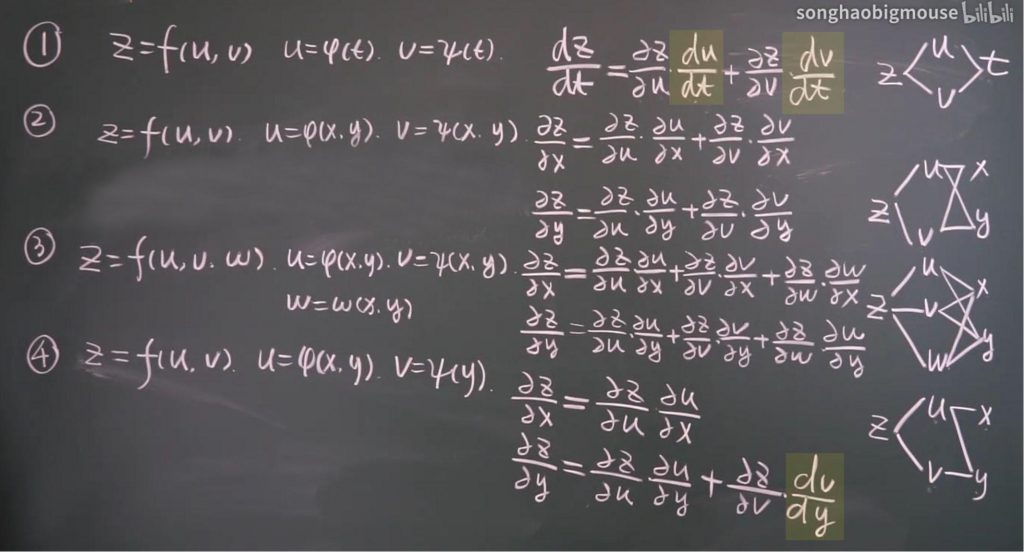 songhaobigmouse bilibili
① z=f(u,v) u=φ(t). v=ψ(t). dz/dt=∂z/∂u·du/dt+∂z/∂v·dv/dt z u v t
② z=f(u,v). u=φ(x,y). v=ψ(x,y). ∂z/∂x=∂z/∂u·∂u/∂x+∂z/∂v·∂v/∂x
∂z/∂y=∂z/∂u·∂u/∂y+∂z/∂v·∂v/∂y z u v x y
③ z=f(u,v,w). u=φ(x,y). v=ψ(x,y). ∂z/∂x=∂z/∂u·∂u/∂x+∂z/∂v·∂v/∂x+∂z/∂w·∂w/∂x
w=w(x,y) ∂z/∂y=∂z/∂u·∂u/∂y+∂z/∂v·∂v/∂y+∂z/∂w·∂w/∂y z u v w x y
④ z=f(u,v). u=φ(x,y). v=ψ(y). ∂z/∂x=∂z/∂u·∂u/∂x
∂z/∂y=∂z/∂u·∂u/∂y+∂z/∂v·dv/dy z u v x y